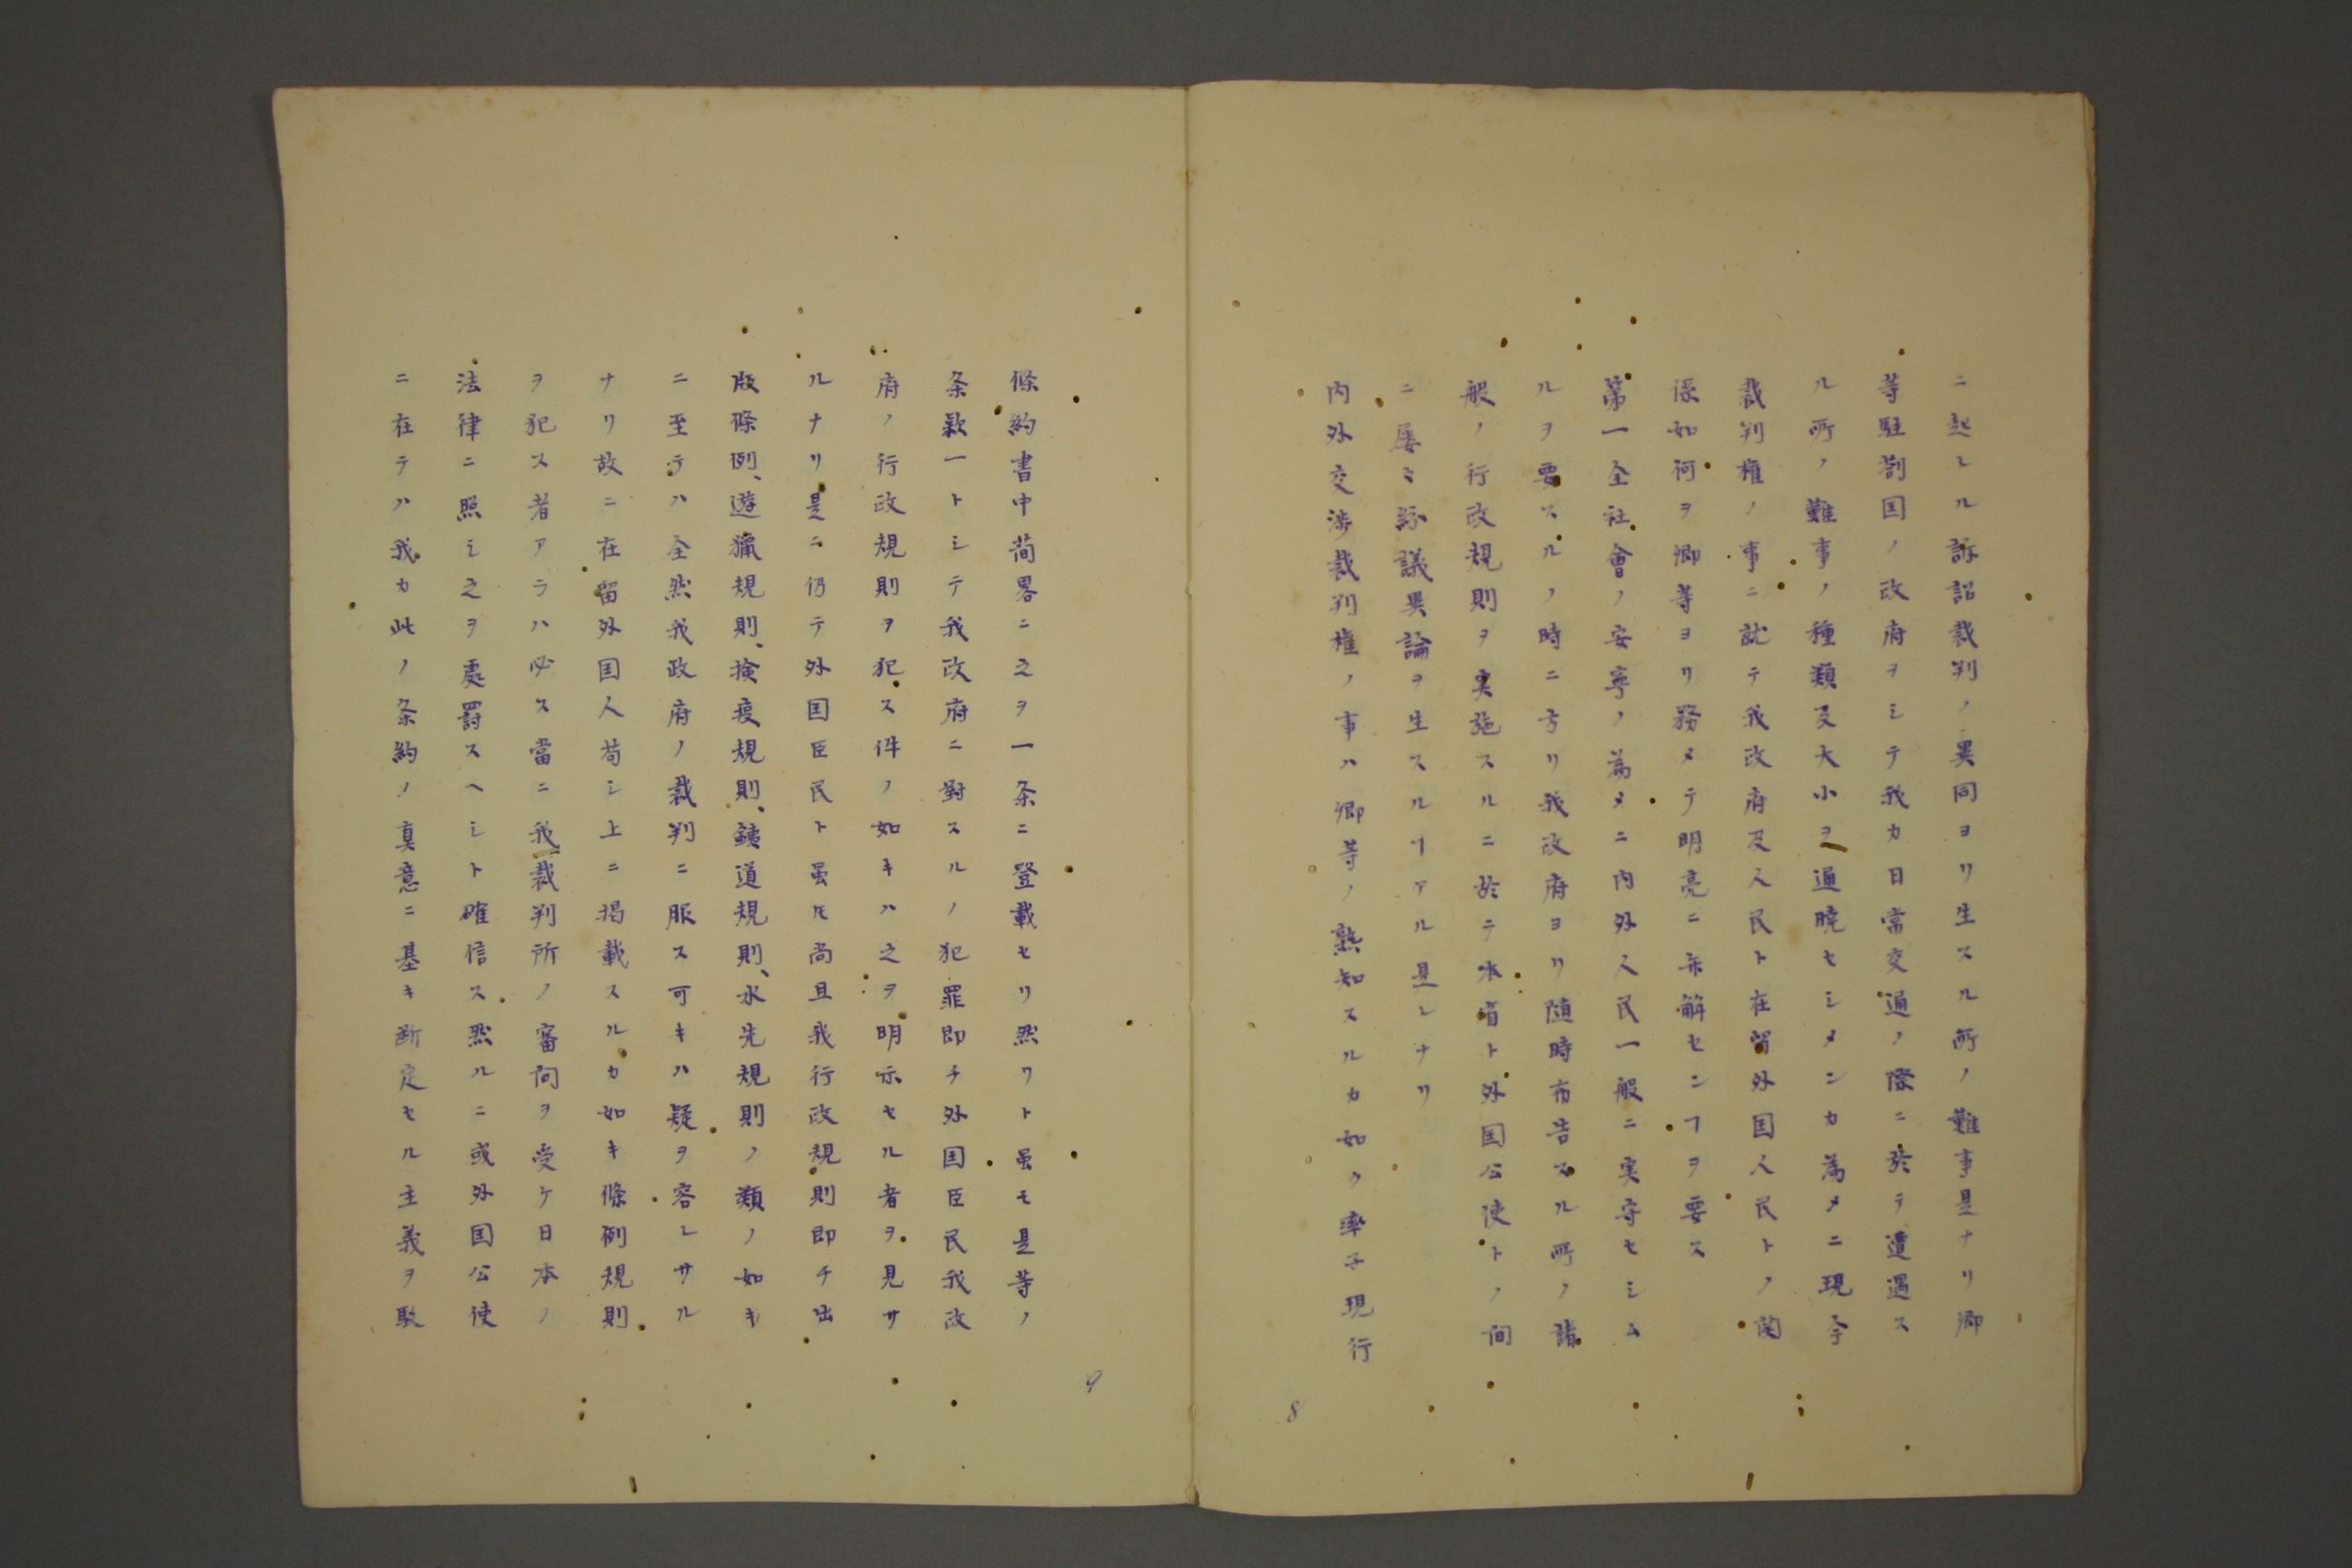 ニ起レル訴詔裁判ノ異同ヨリ生スル所ノ難事是ナリ卿
等駐劄国ノ政府ヲシテ我カ日常交通ノ際ニ於テ遭遇ス
ル所ノ難事ノ種類及大小ヲ通暁セシメンカ為メニ現今
裁判権ノ事ニ就テ我政府及人民ト在留外国人民トノ関
係如何ヲ卿等ヨリ務メテ明亮ニ弁解センヿヲ要ス
第一全社會ノ安寧ノ為メニ内外人民一般ニ実守セシム
ルヲ要スルノ時ニ方リ我政府ヨリ随時布告スル所ノ諸
般ノ行政規則ヲ実施スルニ於テ本省ト外国公使トノ間
ニ屡ミ紛議異論ヲ生スルヿアル是レナリ
内外交渉裁判権ノ事ハ卿等ノ熟知スルカ如ク率子現行
8
條約書中簡畧ニ之ヲ一条ニ登載セリ然リト虽モ是等ノ
条款一トシテ我政府ニ對スルノ犯罪即チ外国臣民我政
府ノ行政規則ヲ犯ス件ノ如キハ之ヲ明示セル者ヲ見サ
ルナリ是ニ仍テ外国臣民ト虽𪜈尚且我行政規則即チ出
版條例、遊獵規則、検疫規則、鉄道規則、水先規則ノ類ノ如キ
ニ至テハ全然我政府ノ裁判ニ服ス可キハ疑ヲ容レサル
ナリ故ニ在留外国人苟シ上ニ掲載スルカ如キ條例規則
ヲ犯ス者アラハ必ス當ニ我裁判所ノ審問ヲ受ケ日本ノ
法律ニ照シ之ヲ處罰スヘシト確信ス然ルニ或外国公使
ニ在テハ我カ此ノ条約ノ真意ニ基キ断定セル主義ヲ駁
9